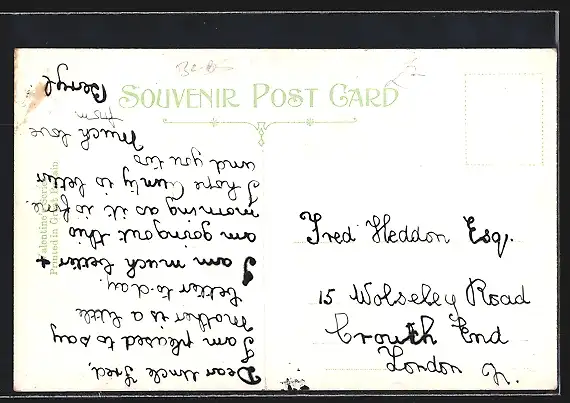 SOUVENIR POST CARD
Fred Heddon Esq.
15 Wolseley Road
Crouch End
London N.
Dear Uncle Fred,
I am pleased to say
Mother is a little
better to-day.
I am much better +
am going out this
morning as it is fine.
I hope Aunty is better
and you too
Much love
from
Beryl
Valentine's Series
Printed in Great Britain